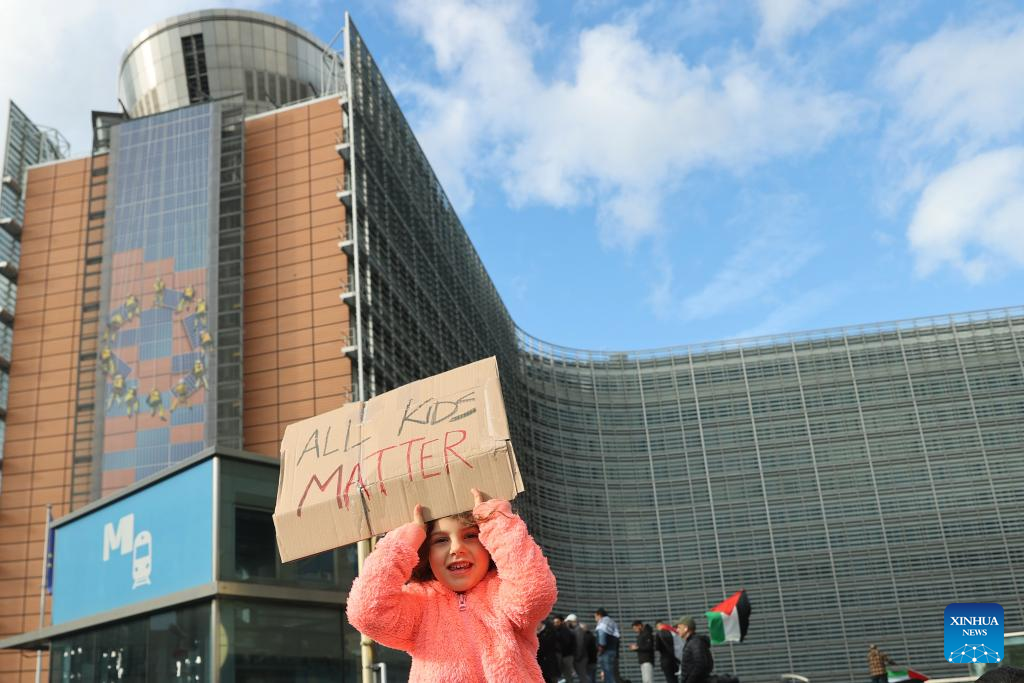 ALL KIDS
MATTER
M
XINHUA
NEWS